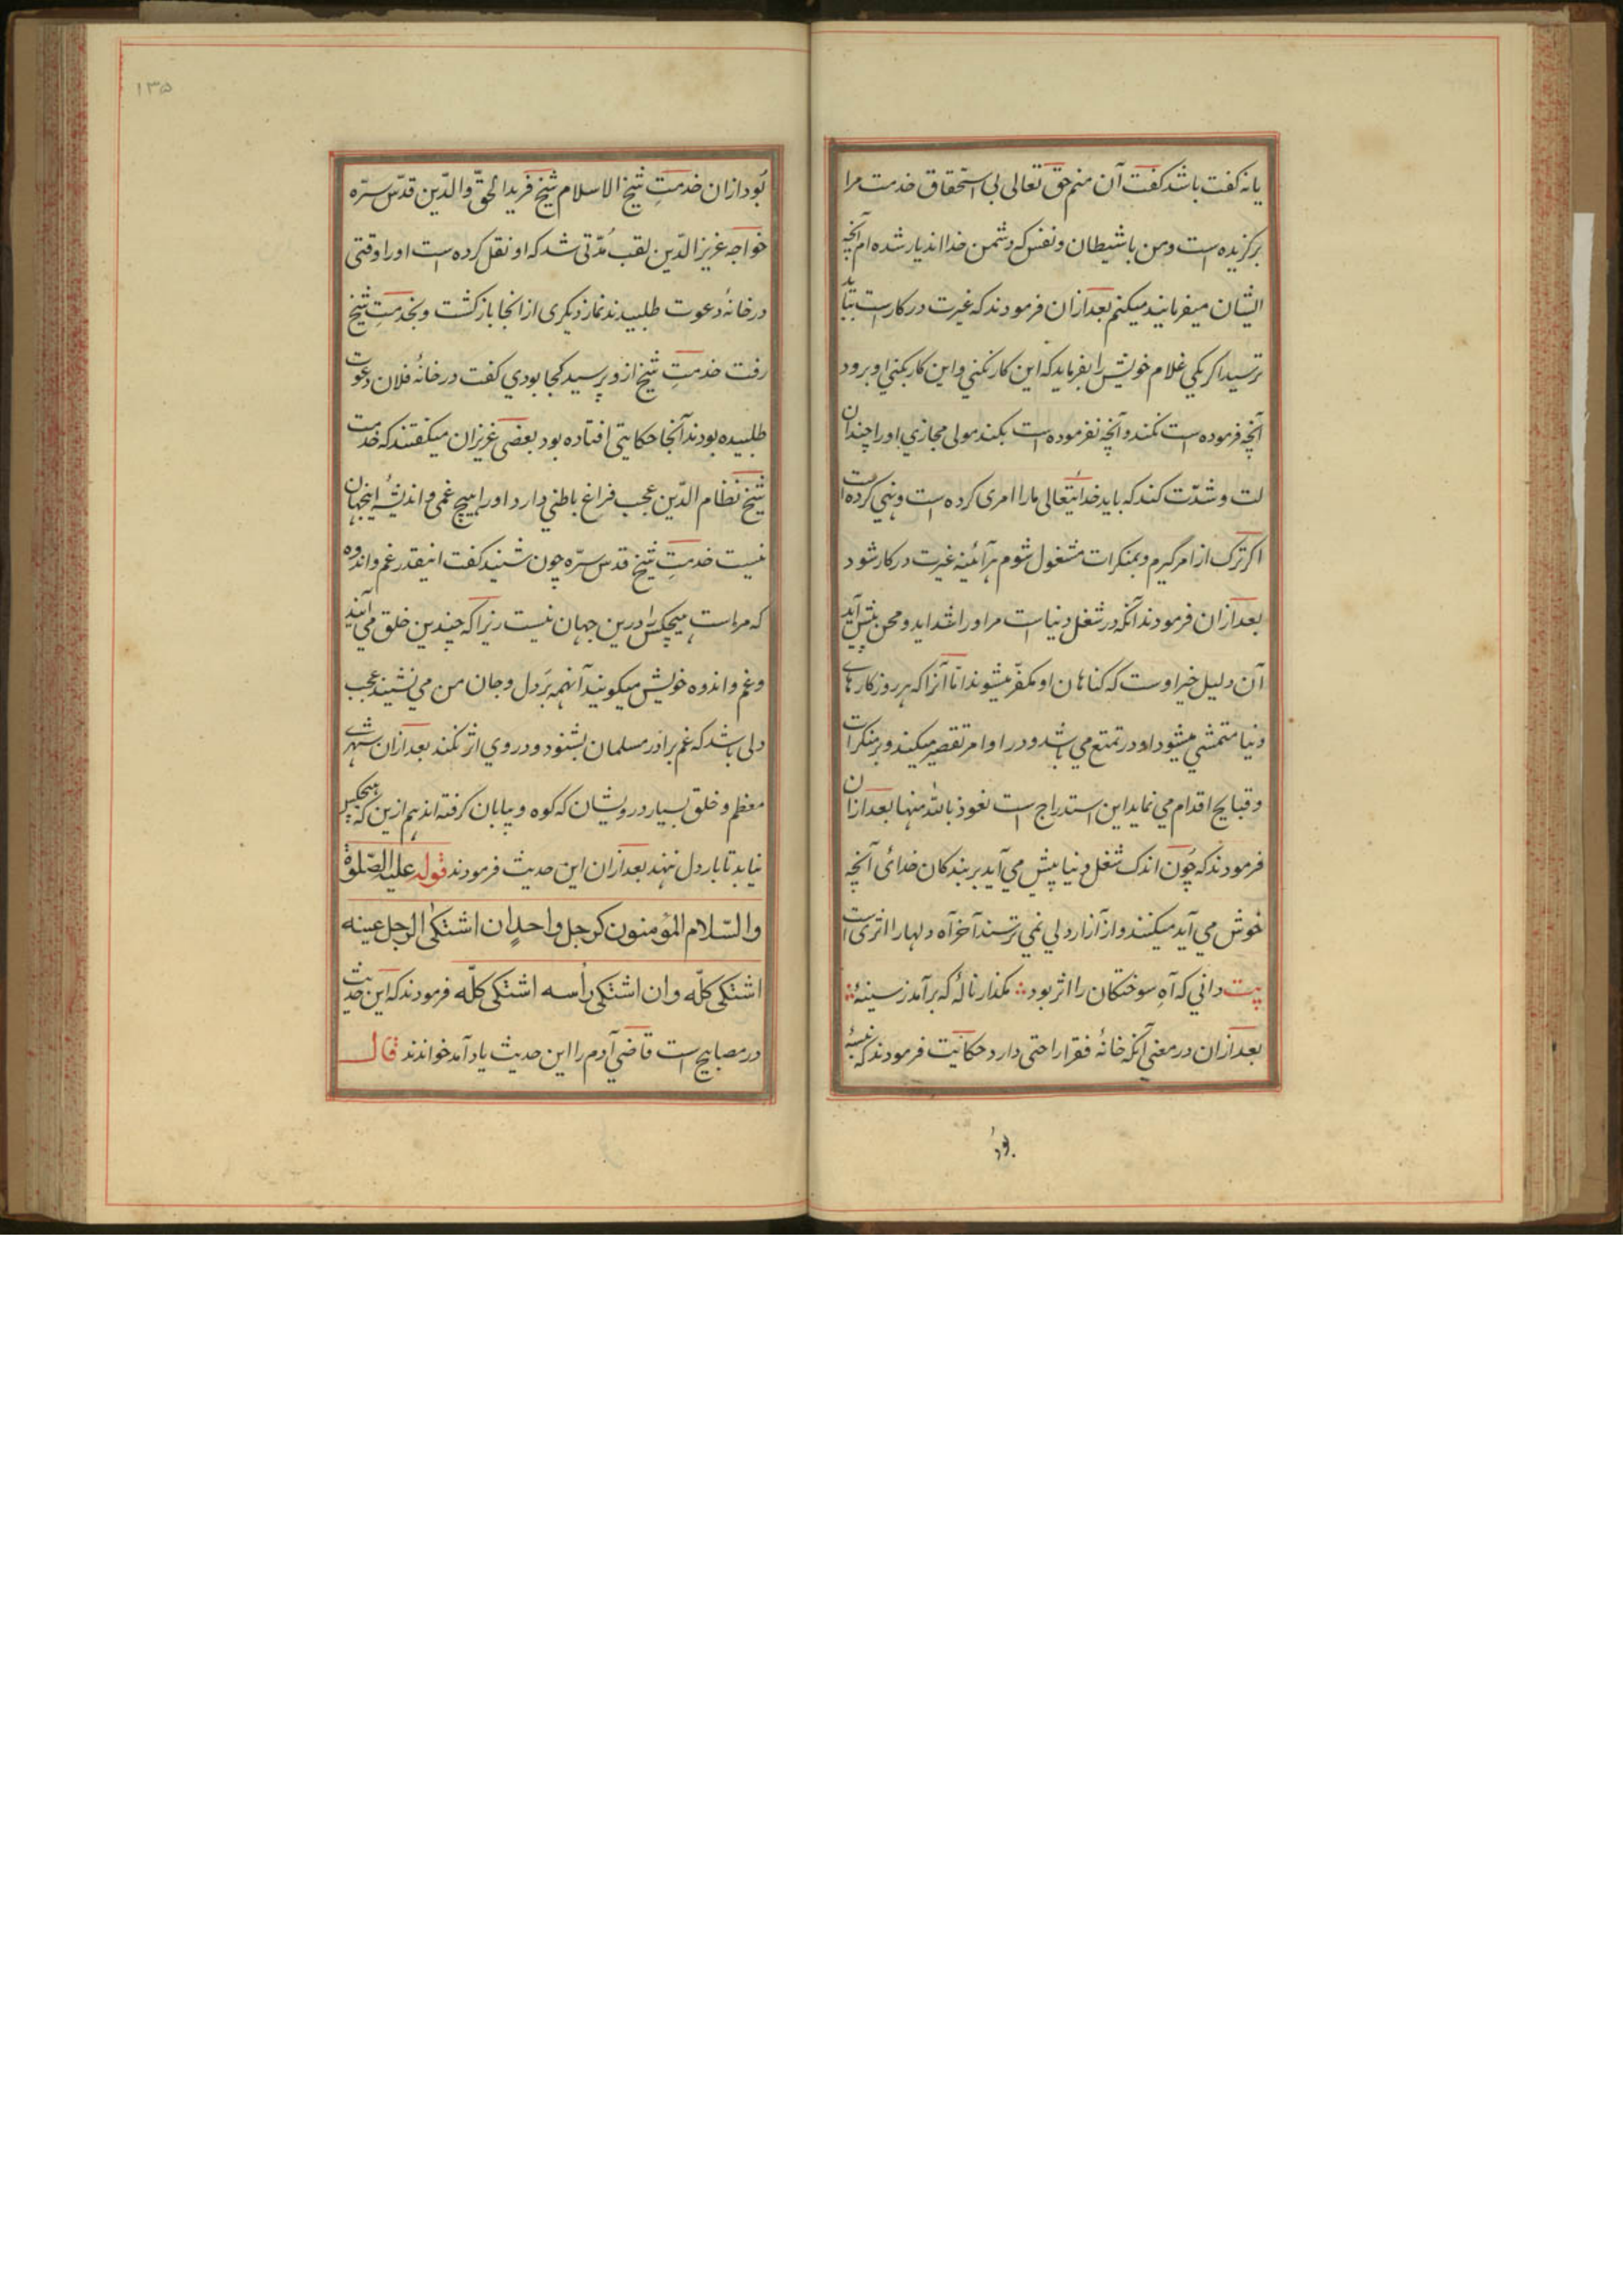 یا نه گفت باشد گفت آن منم حق تعالی بی استحقاق خدمت مرا
برگزیده است و من با شیطان و نفس که دشمن خدا اند یار شده ام آنچه
ایشان میفرمایند میکنم بعد ازان فرمودند که غیرت در کار است بباید
ترسید اگر یکی غلام خویش را بفرماید که این کار نکنی و این کار بکنی او برود
آنچه فرموده است نکند و آنچه نفرموده است بکند مولی مجازی او را چندان
لت و شدّت کند که باید خدایتعالی ما را امری کرده است و نهی کرده است
اگر ترک از امر گیرم و بمنکرات مشغول شوم هرآئینه غیرت در کار شود
بعد ازان فرمودند آنکه در شغل دنیا است مر او را شداید و محن پیش آید
آن دلیل خیر اوست که گناهان او مکفّر میشوند امّا آنرا که هر روز کارهای
دنیا متمشی میشود او در تمتع می باشد و در اوامر تقصیر میکند و بر منکرات
و قبایح اقدام می نماید این استدراج است نعوذ بالله منها بعد ازان
فرمودند که چون اندک شغل دنیا پیش می آید بر بندگان خدائی آنچه
خوش می آید میکنند و از آزار دلی نمی ترسند آخر آه دلها را اثری است
بیت دانی که آهِ سوختگان را اثر بود ؞ مگذار نالهٔ که برآمد ز سینهٔ ؞
بعد ازان در معنی آنکه خانهٔ فقرا راحتی دارد حکایت فرمودند که نبسهٔ
بُود
۱۳۵
بُود ازان خدمتِ شیخ الاسلام شیخ فرید الحقّ و الدّین قدّس سرّه
خواجه عزیز الدّین لقب مُدّتی شد که او نقل کرده است او را وقتی
در خانهٔ دعوت طلبیدند نماز دیگری از انجا بازگشت و بخدمتِ شیخ
رفت خدمتِ شیخ ازو پرسید کجا بودی گفت در خانهٔ فلان دعوت
طلبیده بودند آنجا حکایتی افتاده بود بعضی عزیزان میگفتند که خدمت
شیخ نظام الدّین عجب فراغ باطنی دارد او را هیچ غمی و اندیشهٔ اینجهان
نیست خدمتِ شیخ قدس سرّه چون شنید گفت اینقدر غم و اندوه
که مراست هیچکس را درین جهان نیست زیرا که چندین خلق می آیند
و غم و اندوه خویش میگویند آنهمه بر دل و جان من می نشیند عجب
دلی باشد که غم برادر مسلمان بشنود و در وی اثر نکند بعد ازان شهری
معظم و خلق بسیار درویشان که کوه و بیابان گرفته اند هم ازین که هیچکس
نیاید تا بار دل نهند بعد ازان این حدیث فرمودند قوله علیه الصّلوة
والسّلام المؤمنون کرجل واحد ان اشتکی الرجل عینه
اشتکی کلّه وان اشتکی رأسه اشتکی کلّه فرمودند که این حدیث
در مصابیح است قاضی آدم را این حدیث یاد آمد خواندند قال